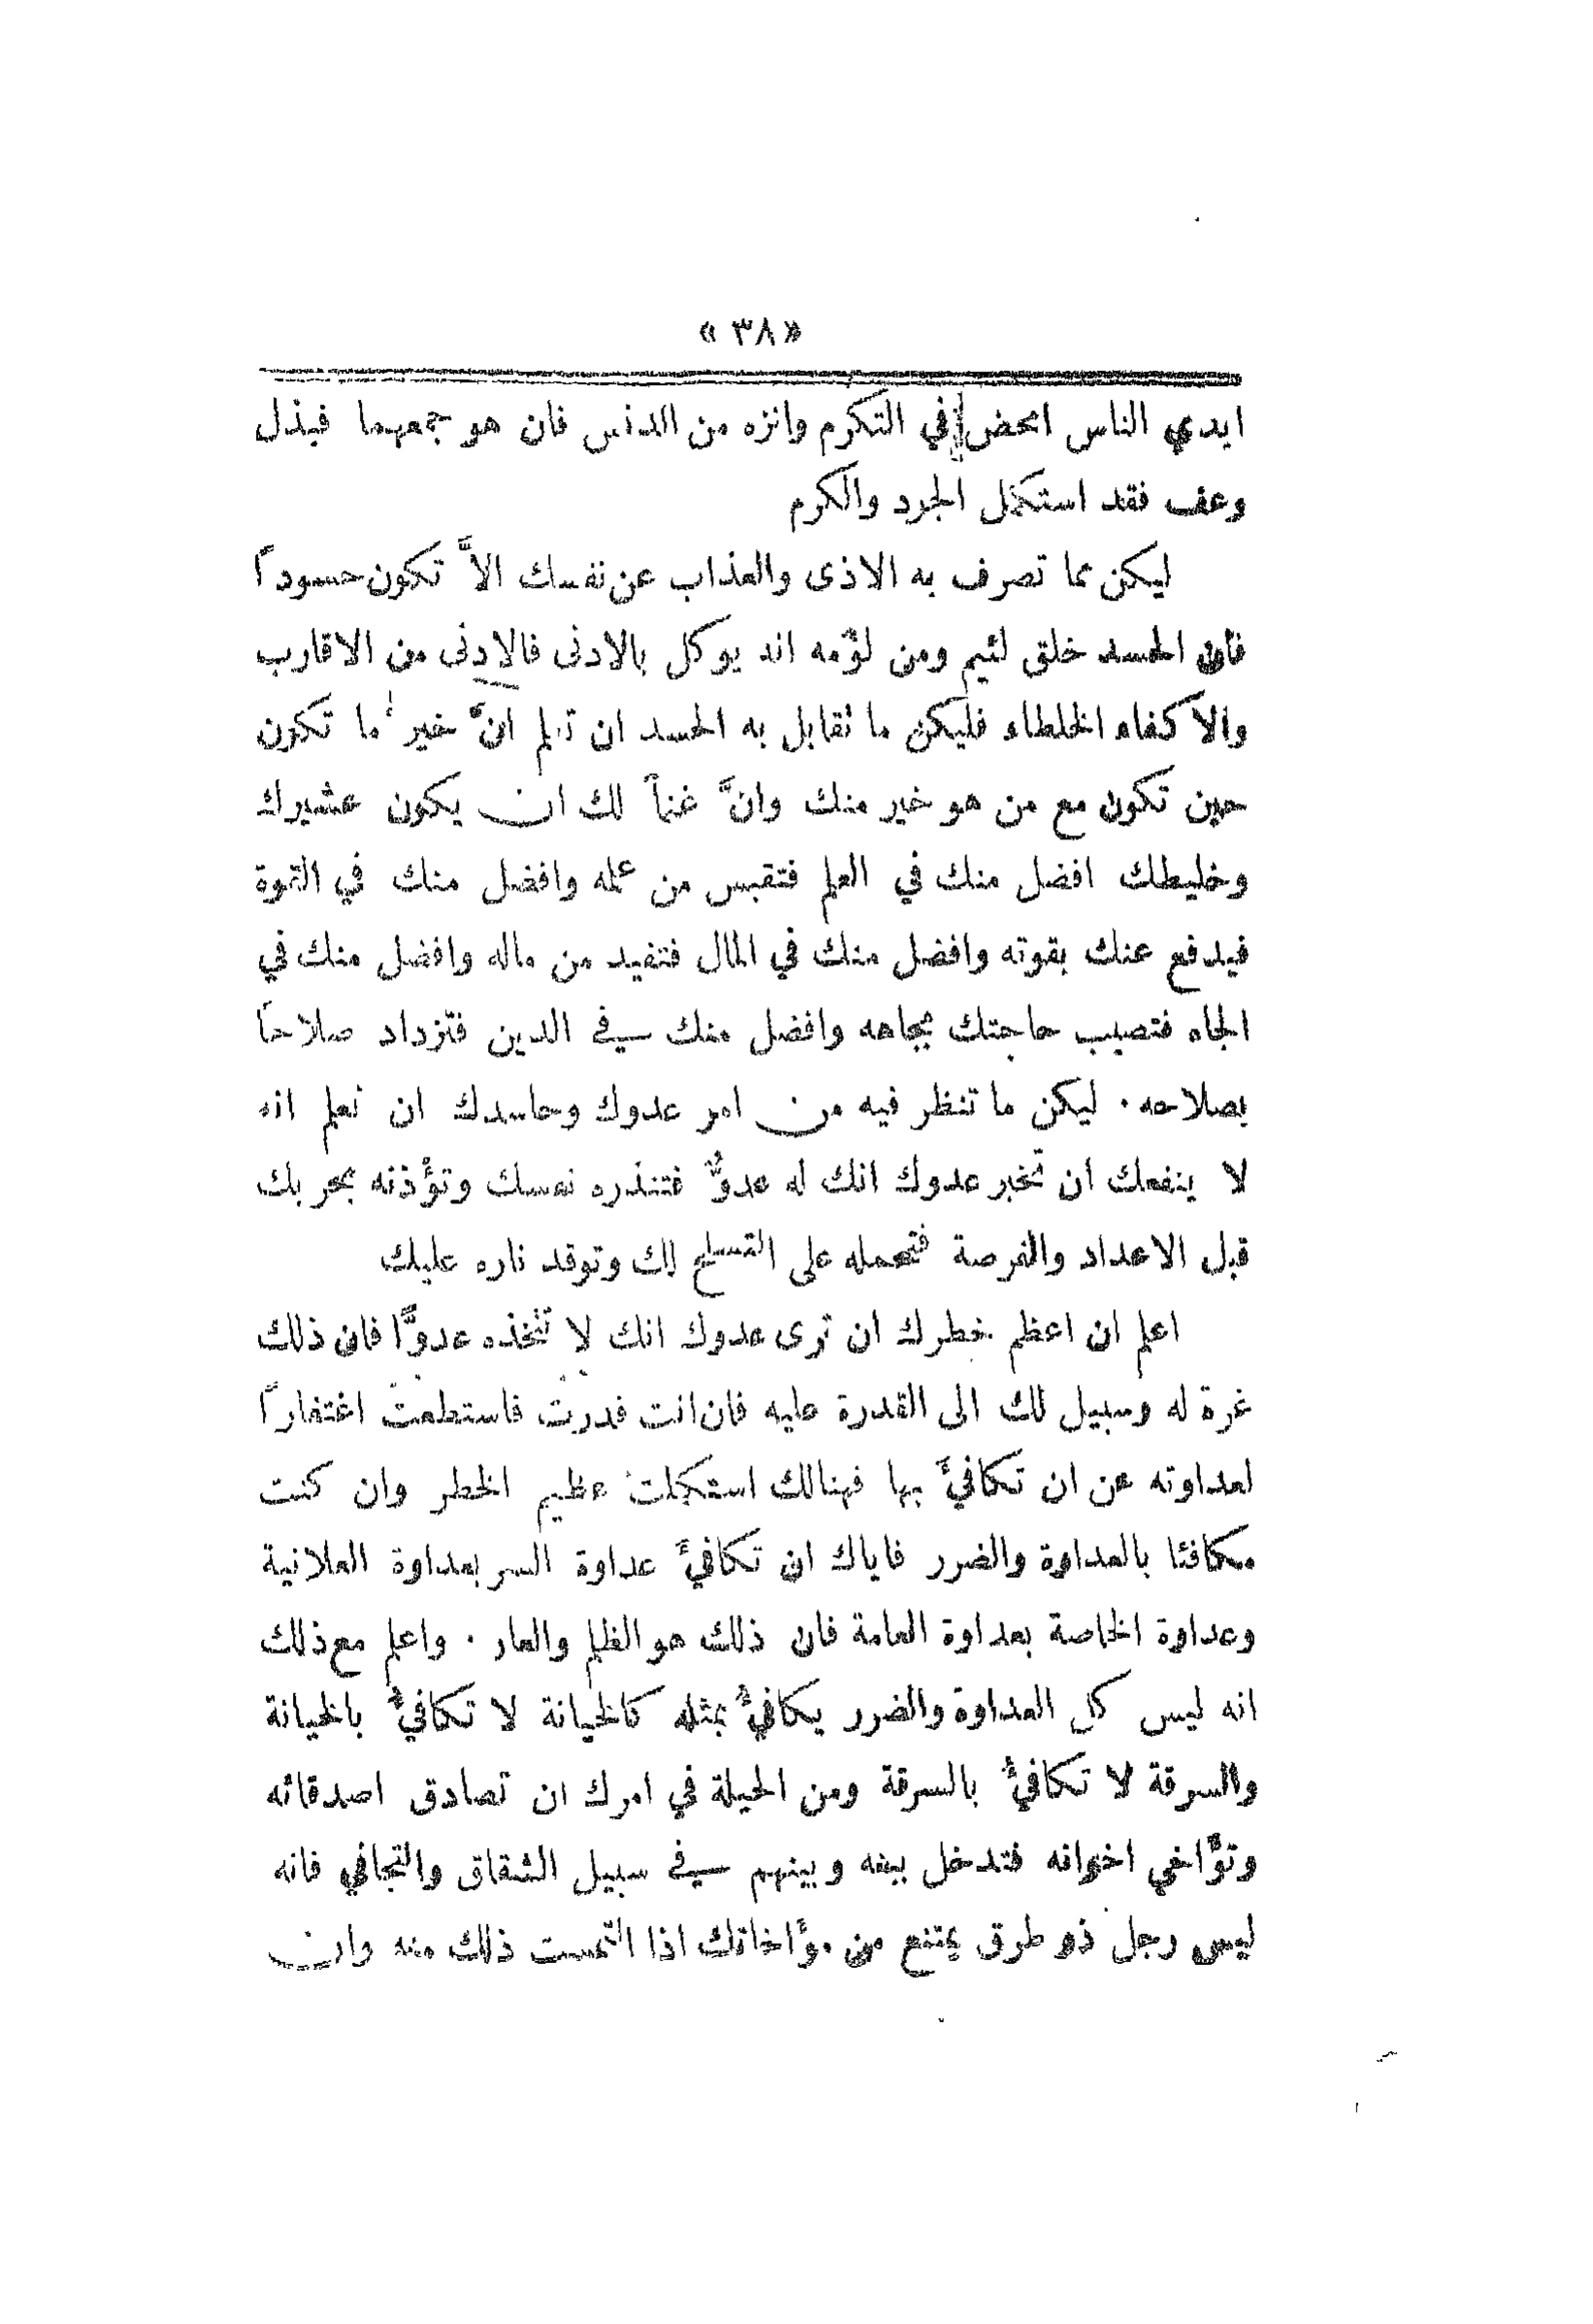 « ٣٨ »
ايدي الناس امحض في التكرم وانزه من الدنس فان هو جمعهما فبذل
وعف فقد استكمل الجود والكرم
ليكن مما تصرف به الاذى والعذاب عن نفسك الاَّ تكون حسوداً
فان الحسد خلق لئيم ومن لؤْمه انه يوكل بالادنى فالادنى من الاقارب
والاكفاء الخلطاء فليكن ما تقابل به الحسد ان تعلم انَّ خير ما تكون
حين تكون مع من هو خير منك وانَّ غنماً لك ان يكون عشيرك
وخليطك افضل منك في العلم فتقبس من علمه وافضل منك في القوة
فيدفع عنك بقوته وافضل منك في المال فتفيد من ماله وافضل منك في
الجاه فتصيب حاجتك بجاهه وافضل منك في الدين فتزداد صلاحاً
بصلاحه . ليكن ما تنظر فيه من امر عدوك وحاسدك ان تعلم انه
لا ينفعك ان تخبر عدوك انك له عدوٌّ فتنذره نفسك وتؤْذنه بحربك
قبل الاعداد والفرصة فتحمله على التسلح لك وتوقد ناره عليك
اعلم ان اعظم خطرك ان ترى عدوك انك لا تتخذه عدوًّا فان ذلك
غرة له وسبيل لك الى القدرة عليه فان انت قدرت فاستطعت اغتفاراً
لعداوته عن ان تكافئَ بها فهنالك استكملت عظيم الخطر وان كنت
مكافئا بالعداوة والضرر فاياك ان تكافئَ عداوة السر بعداوة العلانية
وعداوة الخاصة بعداوة العامة فان ذلك هو الظلم والعار . واعلم مع ذلك
انه ليس كل العداوة والضرر يكافئُ بمثله كالخيانة لا تكافئُ بالخيانة
والسرقة لا تكافئُ بالسرقة ومن الحيلة في امرك ان تصادق اصدقائه
وتؤَاخي اخوانه فتدخل بينه وبينهم في سبيل الشقاق والتجافي فانه
ليس رجل ذو طرق يمتنع من مؤَاخاتك اذا التمست ذلك منه وان